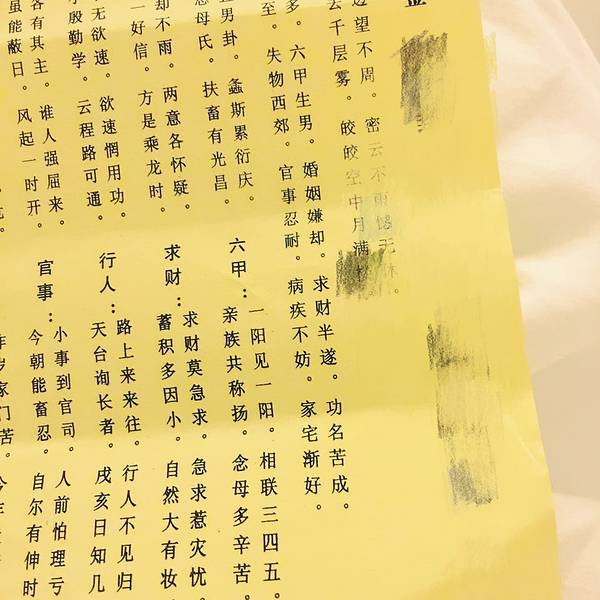 望不周。密云不雨憾无休。
去千层雾。皎皎空中月满
多。六甲生男。婚姻嫌却。求财半遂。功名苦成。
至。失物西郊。官事忍耐。病疾不妨。家宅渐好。
男卦。螽斯累衍庆。
母氏。扶畜有光昌。
六甲：
一阳见一阳。相联三四五。
亲族共称扬。念母多辛苦。
却不雨。两意各怀疑。
一好信。方是乘龙时。
求财：
求财莫急求。急求惹灾忧。
蓄积多因小。自然大有妆
无欲速。欲速惘用功。
殷勤学。云程路可通。
行人：
路上来来往。行人不见归
天台询长者。戌亥日知几
各有其主。谁人强屈来。
虽能蔽日。风起一时开。
官事：
小事到官司。人前怕理亏
今朝能畜忍。自尔有伸时
岁家门苦。